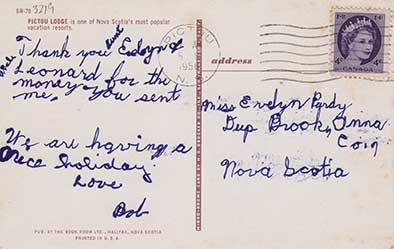 SR-70 3219
PICTOU LODGE is one of Nova Scotia's most popular
vacation resorts.
Thank you Aunt Evelyn &
Uncle Leonard for the
money you sent
me.
We are having a
nice holiday.
Love
Bob
PUB. BY THE BOOK ROOM LTD., HALIFAX, NOVA SCOTIA
PRINTED IN U.S.A.
PICTOU
N.
address
CANADA
Miss Evelyn Purdy
Deep Brook, Anna
Co
Nova Scotia